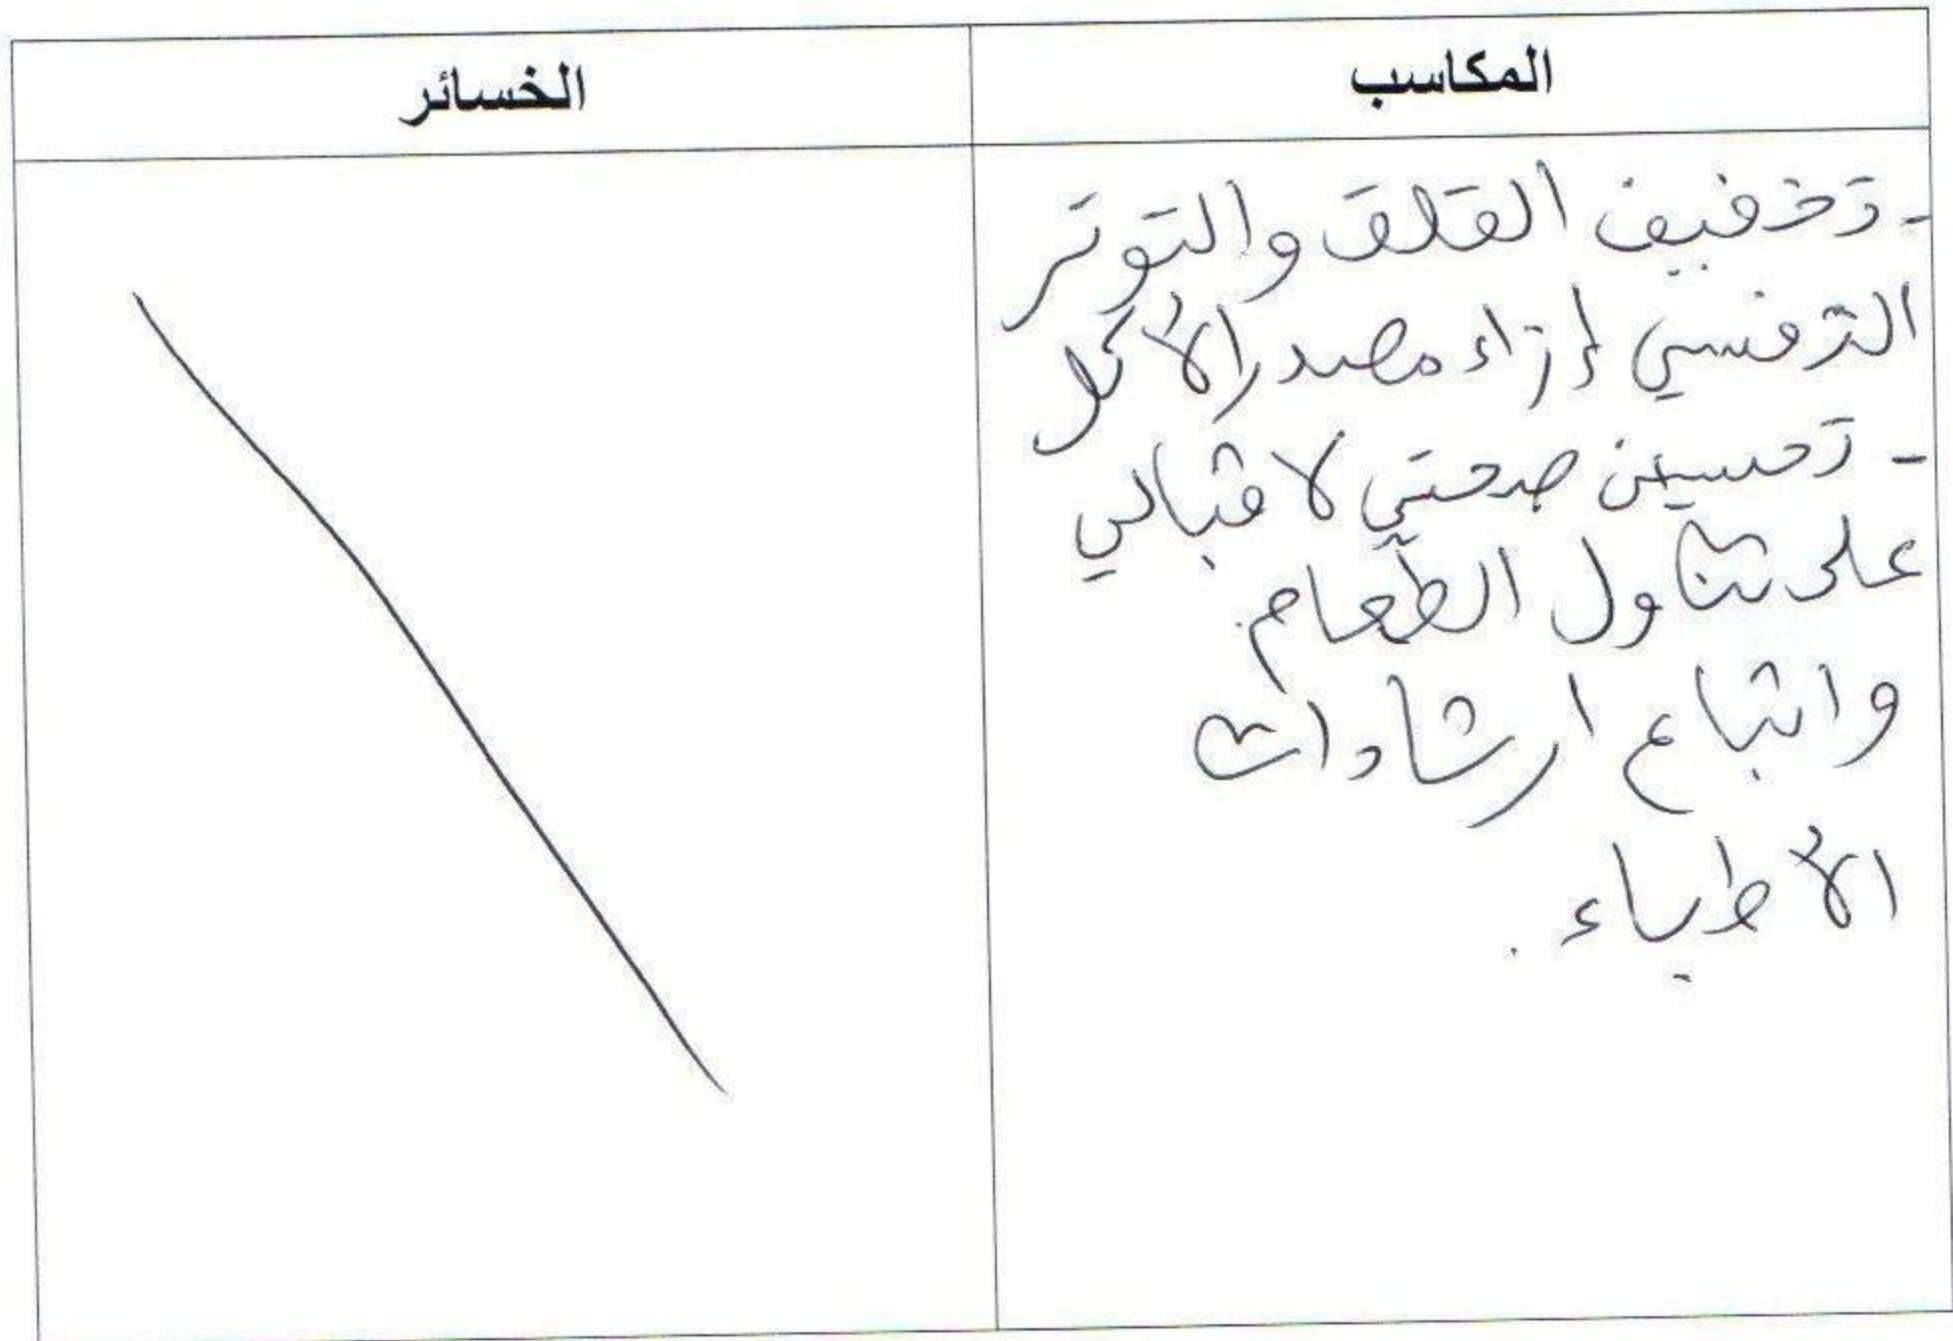 المكاسب
الخسائر
- تخفيف القلق والتوتر
النفسي إزاء مصدر الأكل
- تحسين صحتي لاقبالي
على تناول الطعام.
واتباع ارشادات
الأطباء.